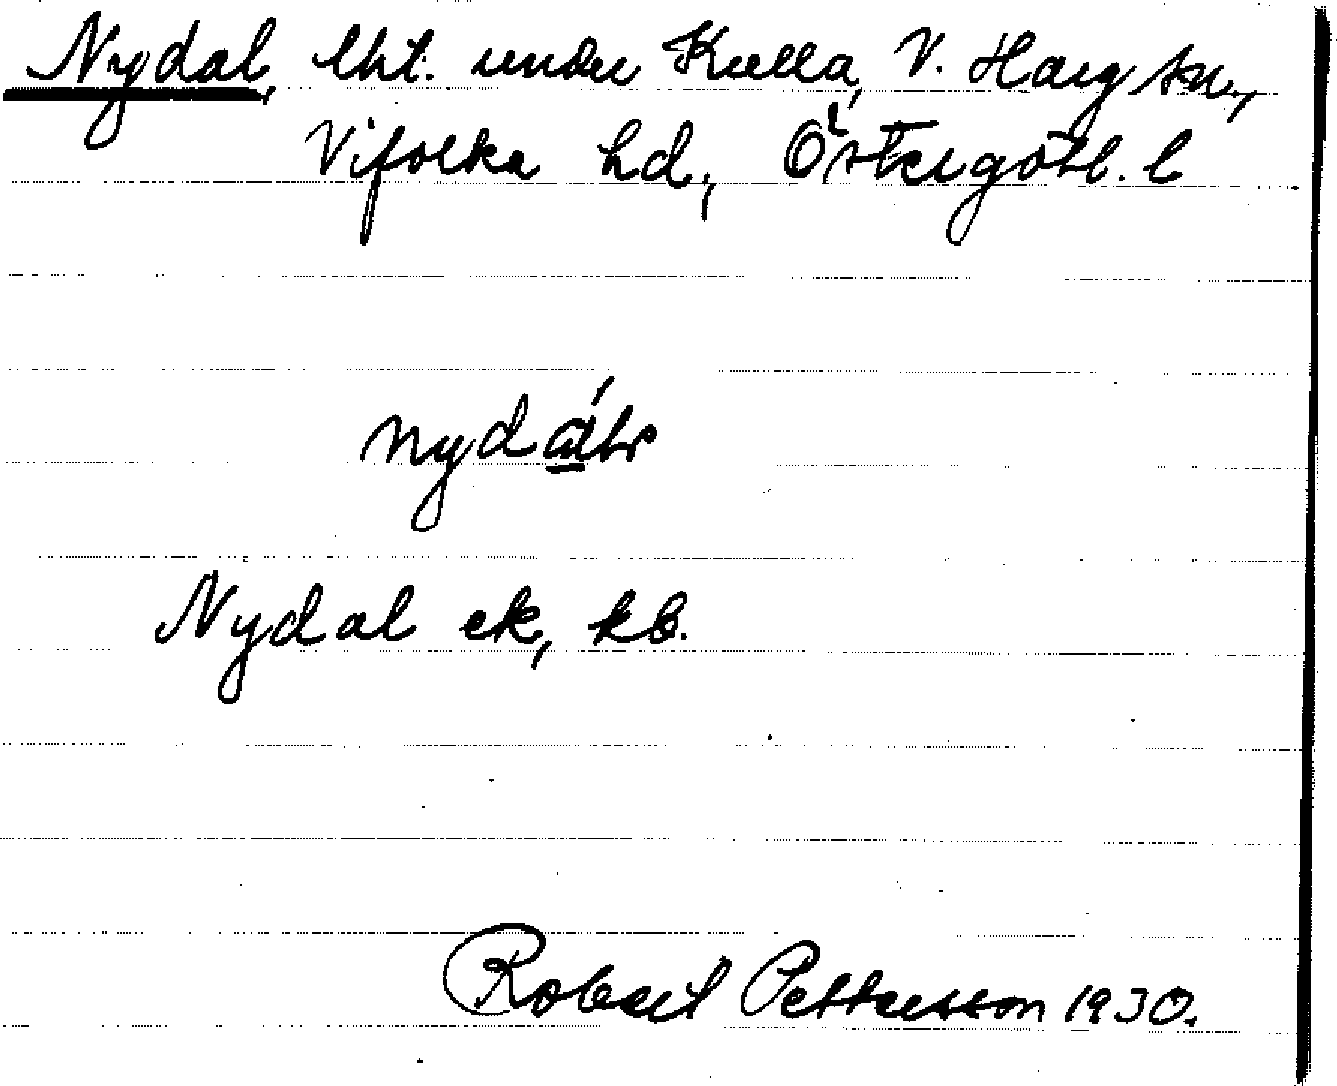 Nydal, lht. under Kulla, V. Harg sn.,
Vifolka hd, Östergötl. l
nydáls
Nydal ek, kb.
Robert Pettersson 1930.